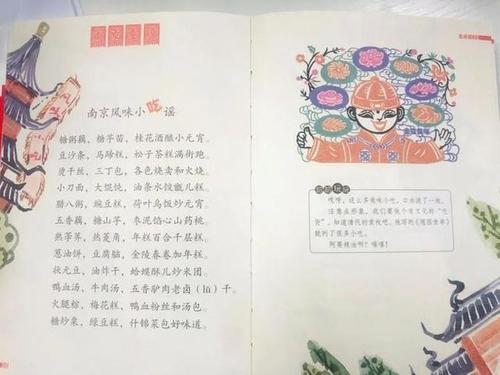 南京风味小吃谣
糖粥藕，糖芋苗，桂花酒酿小元宵。
豆沙条，马蹄糕，松子茶糕满街跑。
烫干丝，三丁包，各色烧卖和火烧。
小刀面，大馄饨，油条水饺甑儿糕。
腊八粥，豌豆糕，荷叶鸟饭炒元宵。
五香藕，糖山芋，枣泥馅心山药桃。
熟荸荠，熟菱角，年糕百合千层糕。
葱油饼，豆腐脑，金陵春卷加年糕。
状元豆，油炸干，蛤蟆酥儿炒米团。
鸭血汤，牛肉汤，五香驴肉老卤（lǔ）干。
火腿粽，梅花糕，鸭血粉丝和汤包。
糖炒栗，绿豆糕，什锦菜包好味道。
哎呀，这么多美味小吃，口水流了一地。
注意点形象，我们要做个有文化的“吃
货”，知道清代的袁枚吧，他写的《随园食单》
就列了很多小吃。
阿要辣油啊？嘻嘻！